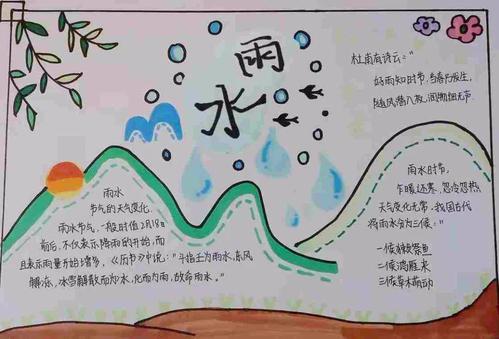 雨
水
杜甫有诗云："
好雨知时节，当春乃发生，
随风潜入夜，润物细无声。
雨水
节气的天气变化
雨水节气，一般时值2月18日
前后，不仅表示降雨的开始，而
且表示雨量开始增多，《历书》中说："斗指壬为雨水，东风
解冻，冰雪解散而为水，化而为雨，故命雨水。"
雨水时节，
乍暖还寒，忽冷忽热，
天气变化无常，我国古代
将雨水分为三候：
一候獭祭鱼
二候鸿雁来
三候草木萌动